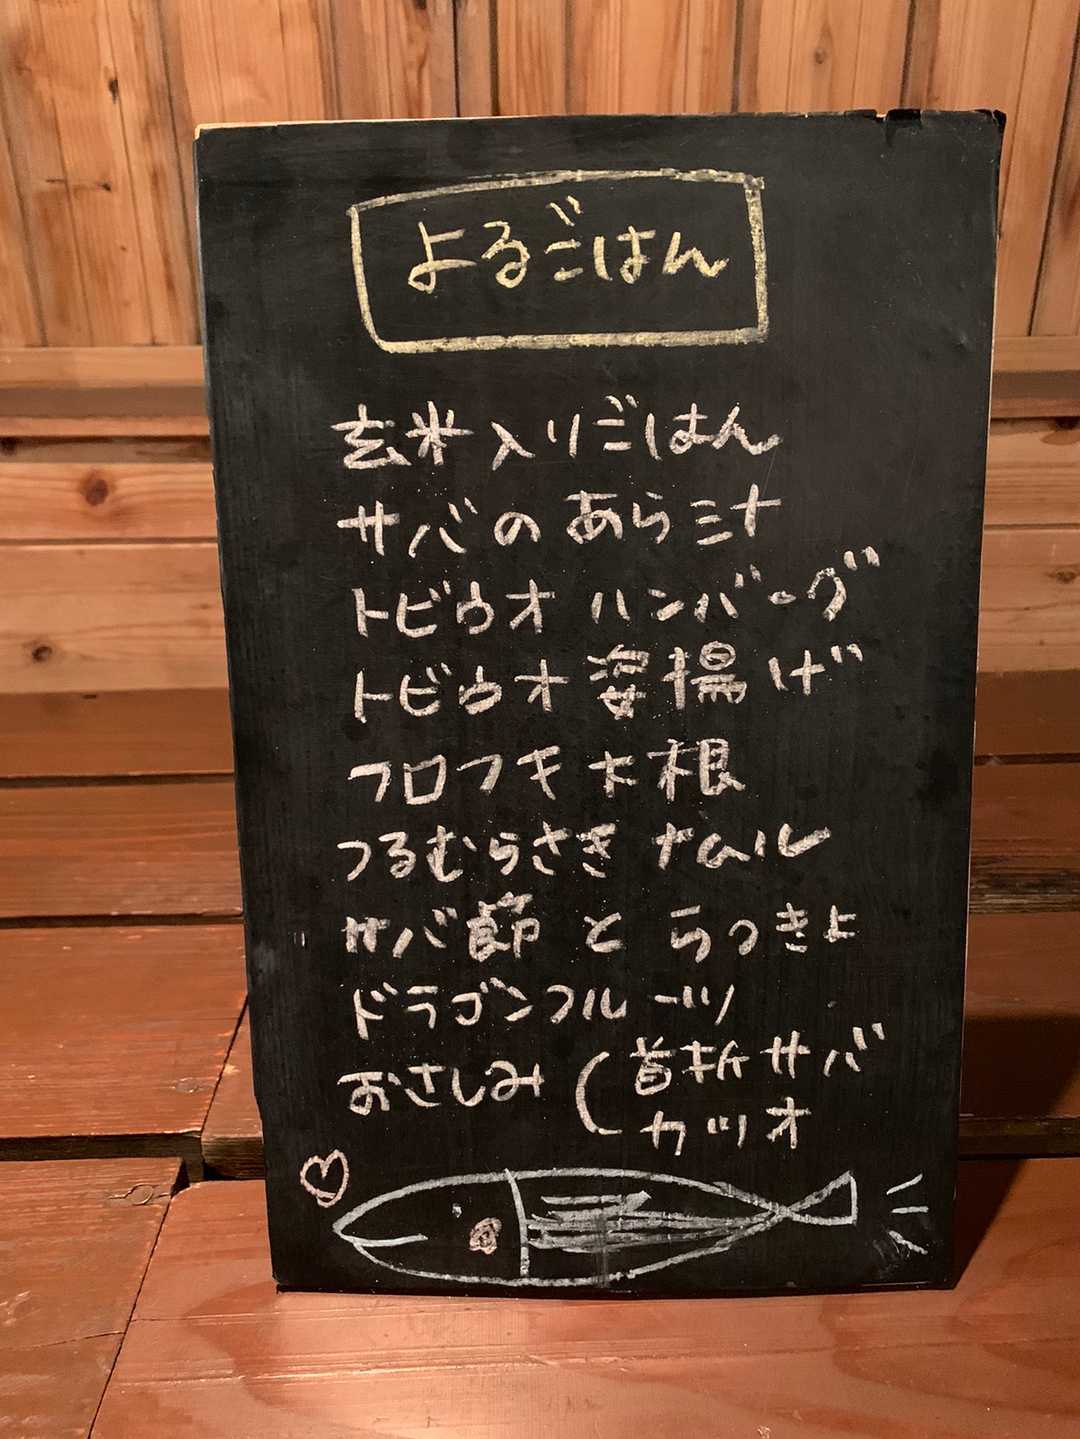 よるごはん
玄米入りごはん
サバのあら汁
トビウオ ハンバーグ
トビウオ 姿揚げ
フロフキ大根
つるむらさき ナムル
サバ節 と らっきょ
ドラゴンフルーツ
おさしみ (首折サバ
カツオ